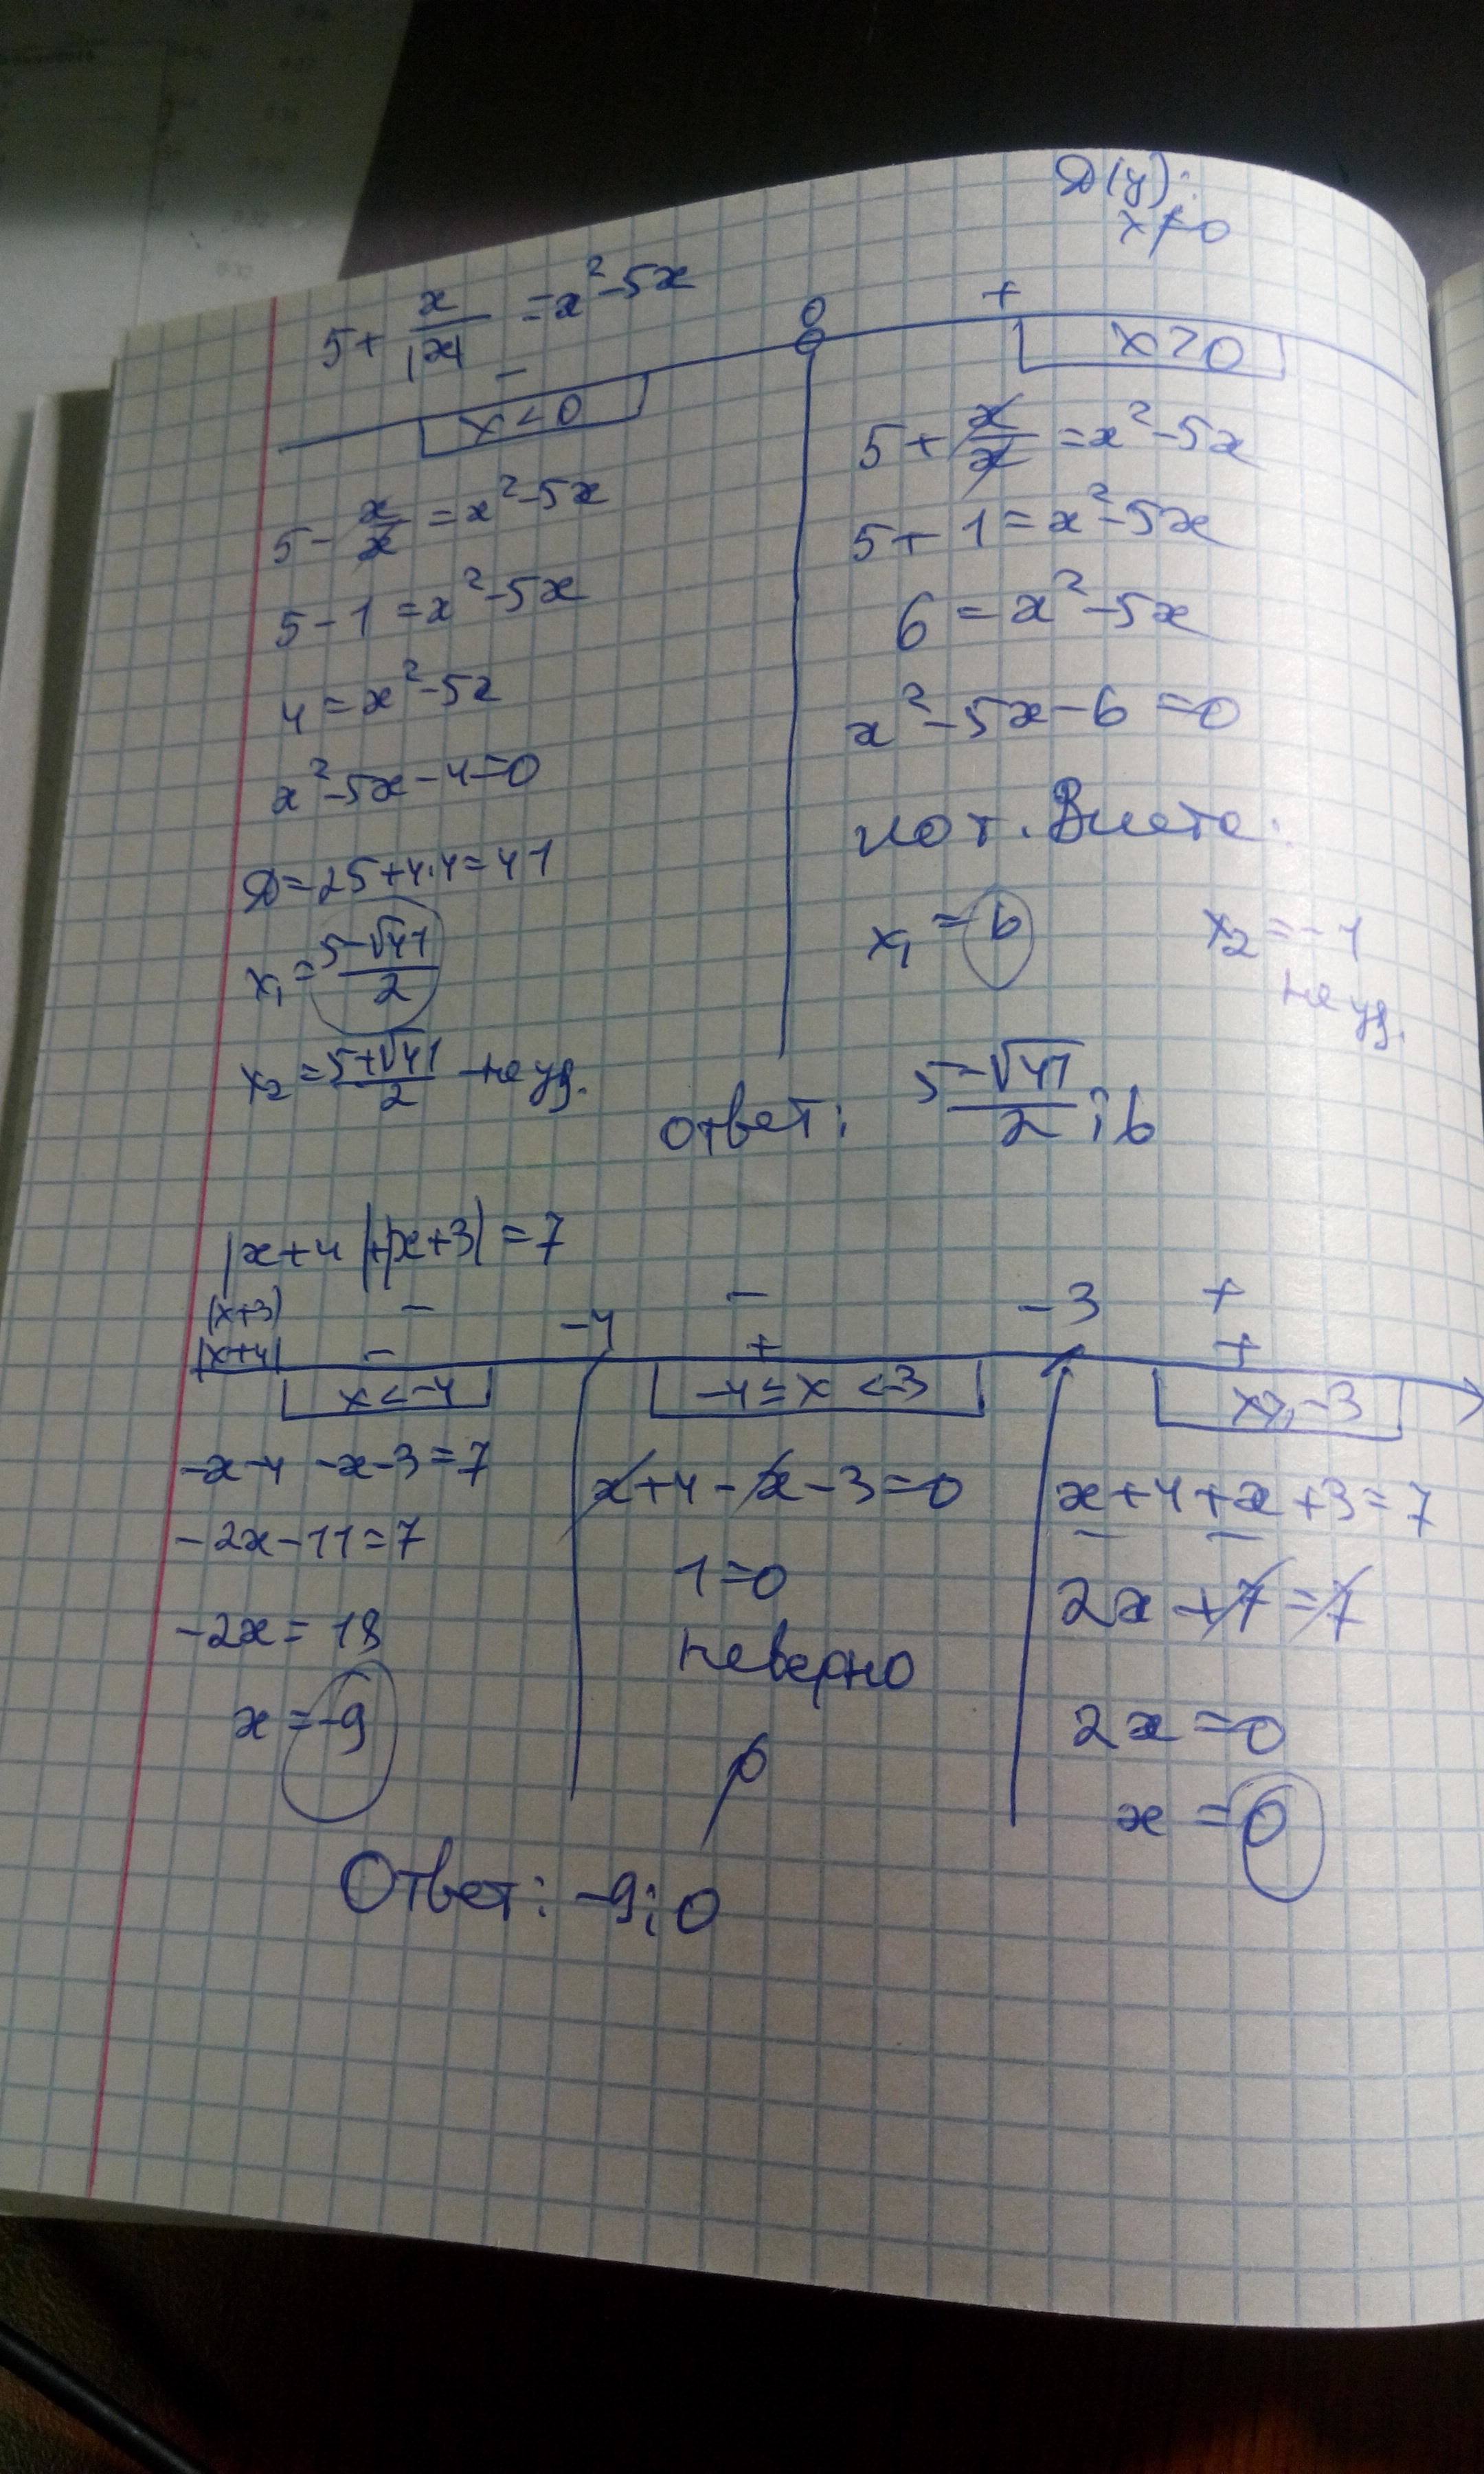 D(y):
x≠0
5+ x/|x| =x²-5x
0
- +
x<0
x>0
5- x/x =x²-5x
5-1=x²-5x
4=x²-5x
x²-5x-4=0
D=25+4·4=41
x₁=(5-√41)/2
x₂=(5+√41)/2 -не уд.
5+ x/x =x²-5x
5+1=x²-5x
6=x²-5x
x²-5x-6=0
по т. Виета:
x₁=6 x₂=-1
не уд.
ответ: (5-√41)/2; 6
|x+4|+|x+3|=7
|x+3| - - +
|x+4| - + +
-4 -3
x<-4
-4≤x<-3
x≥-3
-x-4-x-3=7
-2x-11=7
-2x=18
x=-9
x+4-x-3=0
1=0
неверно
∅
x+4+x+3=7
2x+7=7
2x=0
x=0
Ответ: -9; 0